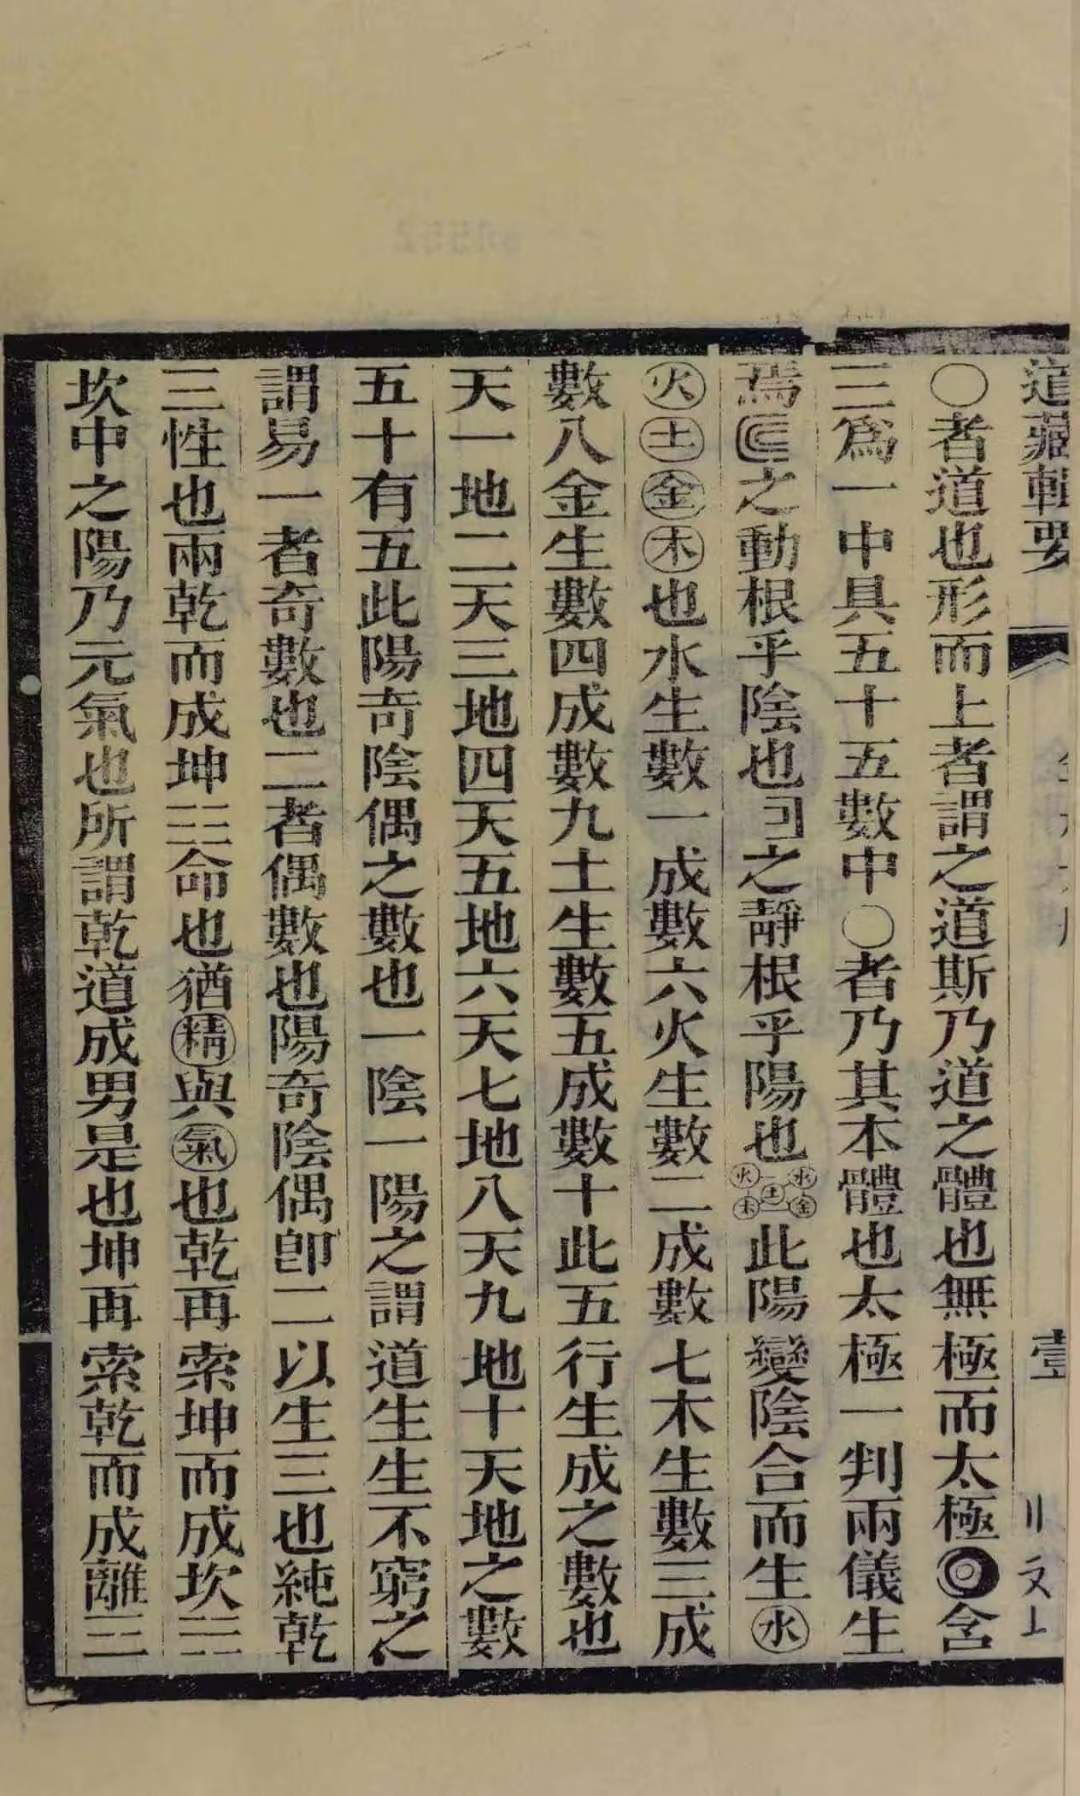 道藏輯要
壹
〇者道也形而上者謂之道斯乃道之體也無極而太極含
三爲一中具五十五數中〇者乃其本體也太極一判兩儀生
焉之動根乎陰也之靜根乎陽也水火土金木此陽變陰合而生㊌
㊋㊏㊎㊍也水生數一成數六火生數二成數七木生數三成
數八金生數四成數九土生數五成數十此五行生成之數也
天一地二天三地四天五地六天七地八天九地十天地之數
五十有五此陽奇陰偶之數也一陰一陽之謂道生生不窮之
謂易一者奇數也二者偶數也陽奇陰偶卽二以生三也純乾
☰性也兩乾而成坤☷命也猶精與氣也乾再索坤而成坎☵
坎中之陽乃元氣也所謂乾道成男是也坤再索乾而成離☲